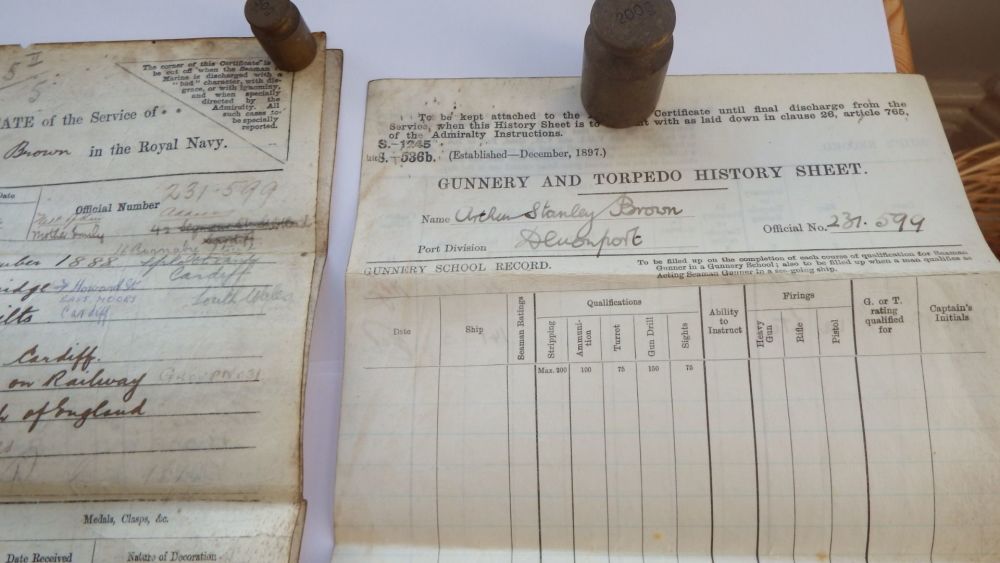 5 I
5
The corner of this Certificate is
be cut off when the Seaman
Marine is discharged with a
"bad" character, with dis-
grace, or with ignominy,
and when specially
directed by the
Admiralty. All
such cases to
be specially
reported.
ATE of the Service of
Brown in the Royal Navy.
Date
Official Number 231-599
Mother Emily
mber 1888
Splott
Cardiff
idge Howard St
EAST MOORS
Cardiff
South Wales
ilts
Cardiff.
on Railway
h of England
Medals, Clasps, &c.
Date Received
Nature of Decoration
200
To be kept attached to the Certificate until final discharge from the
Service, when this History Sheet is to with as laid down in clause 26, article 765,
of the Admiralty Instructions.
S.-1245
late S.-536b. (Established—December, 1897.)
GUNNERY AND TORPEDO HISTORY SHEET.
Name Arthur Stanley Brown
Official No. 231.599
Port Division Devonport
GUNNERY SCHOOL RECORD.
To be filled up on the completion of each course of qualification for Seaman
Gunner in a Gunnery School; also to be filled up when a man qualifies as
Acting Seaman Gunner in a sea-going ship.
Date
Ship
Seaman Ratings
Qualifications
Stripping
Ammuni-
tion
Turret
Gun Drill
Sights
Ability
to
Instruct
Firings
Heavy
Gun
Rifle
Pistol
G. or T.
rating
qualified
for
Captain's
Initials
Max. 200 100 75 150 75